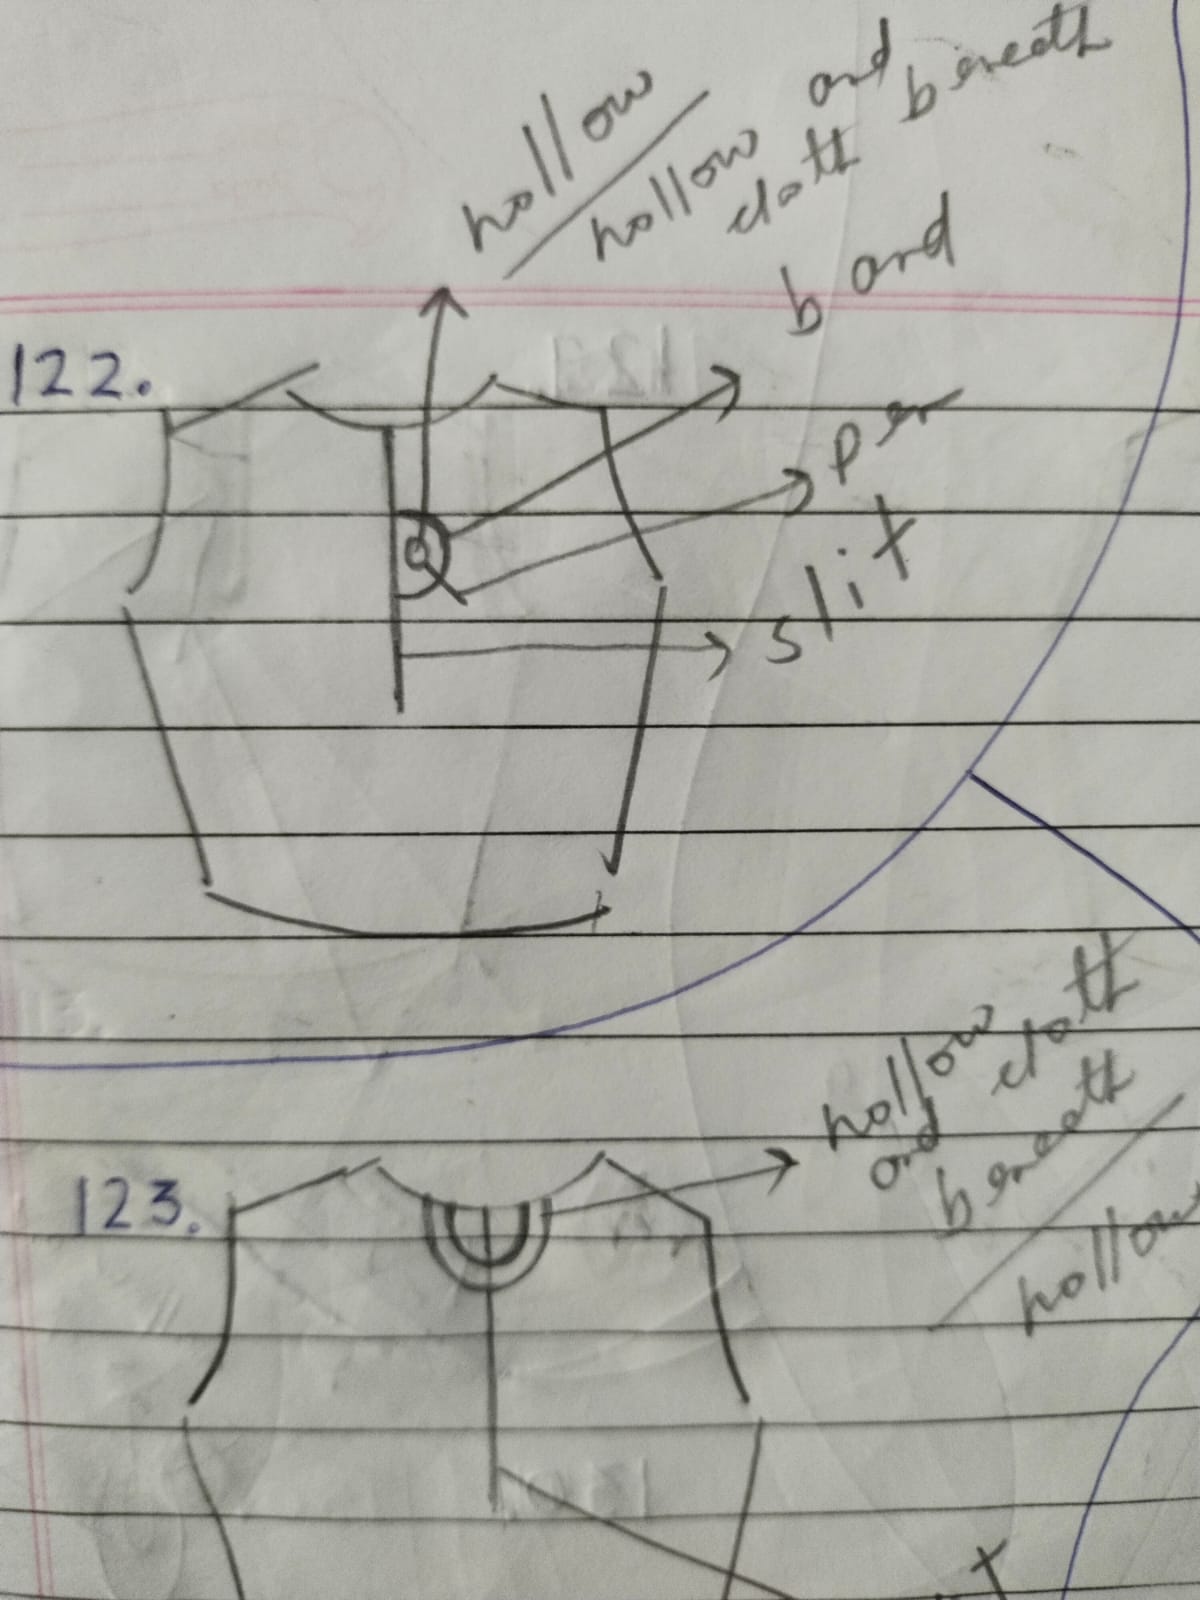 hollow
hollow and
cloth beneath
band
122.
per
slit
hollow
and cloth
beneath
123.
hollow